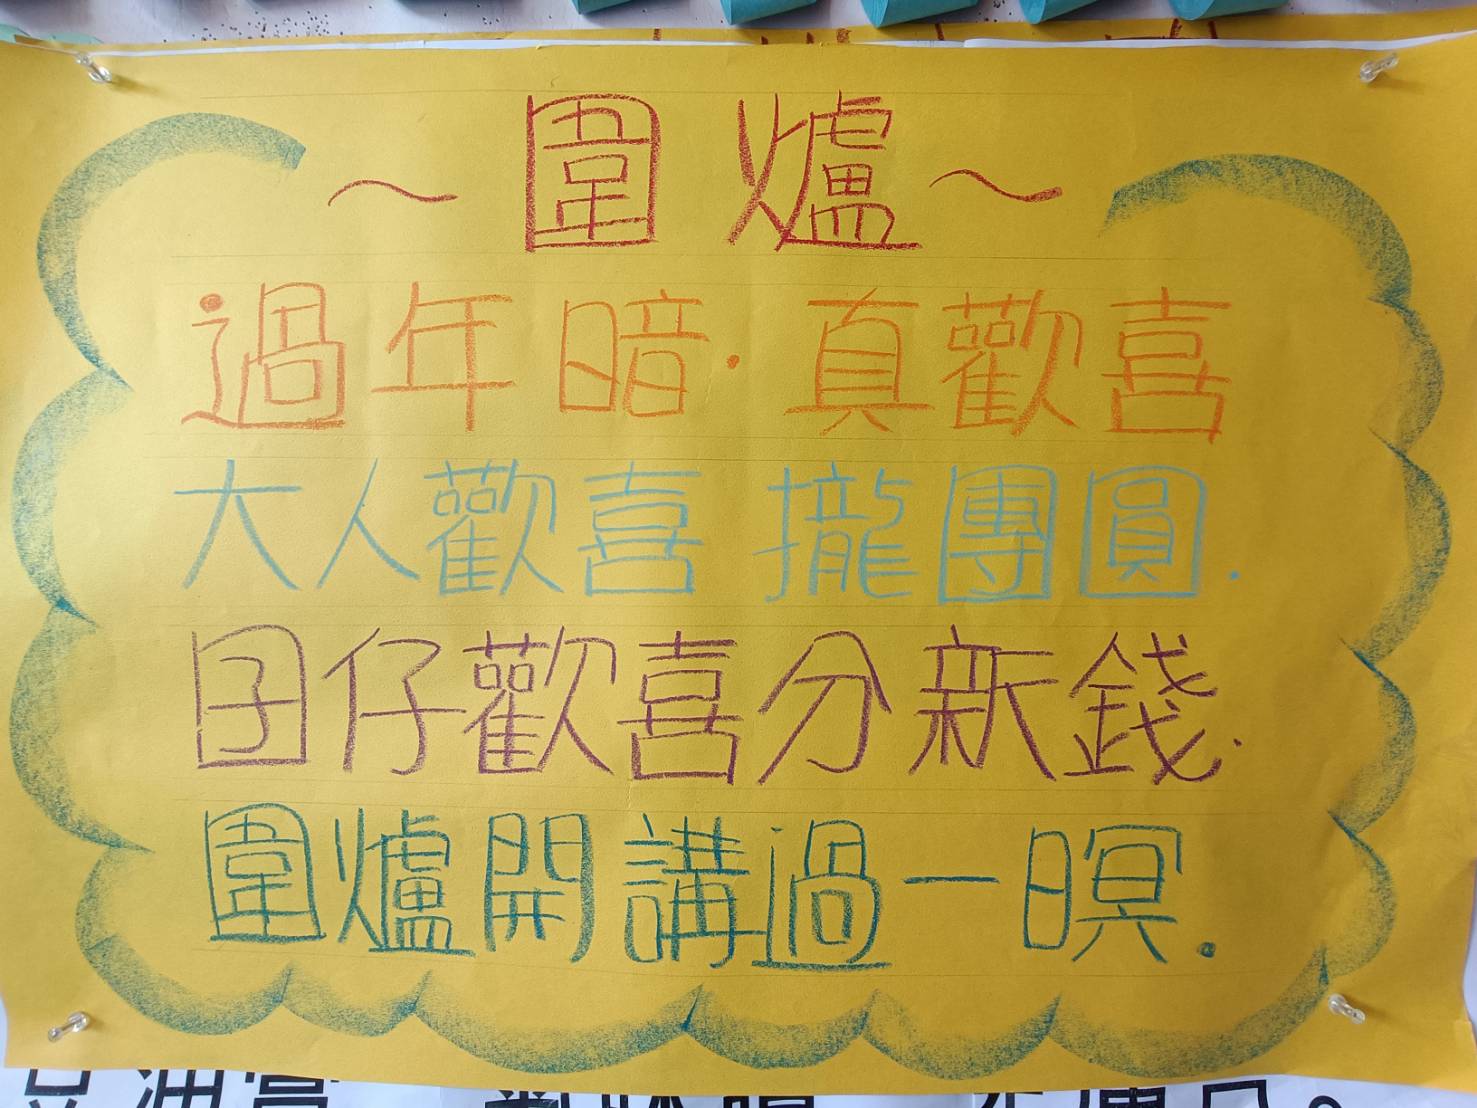 ~圍爐~
過年暗.真歡喜
大人歡喜 攏團圓.
囝仔歡喜分新錢.
圍爐開講過一暝.